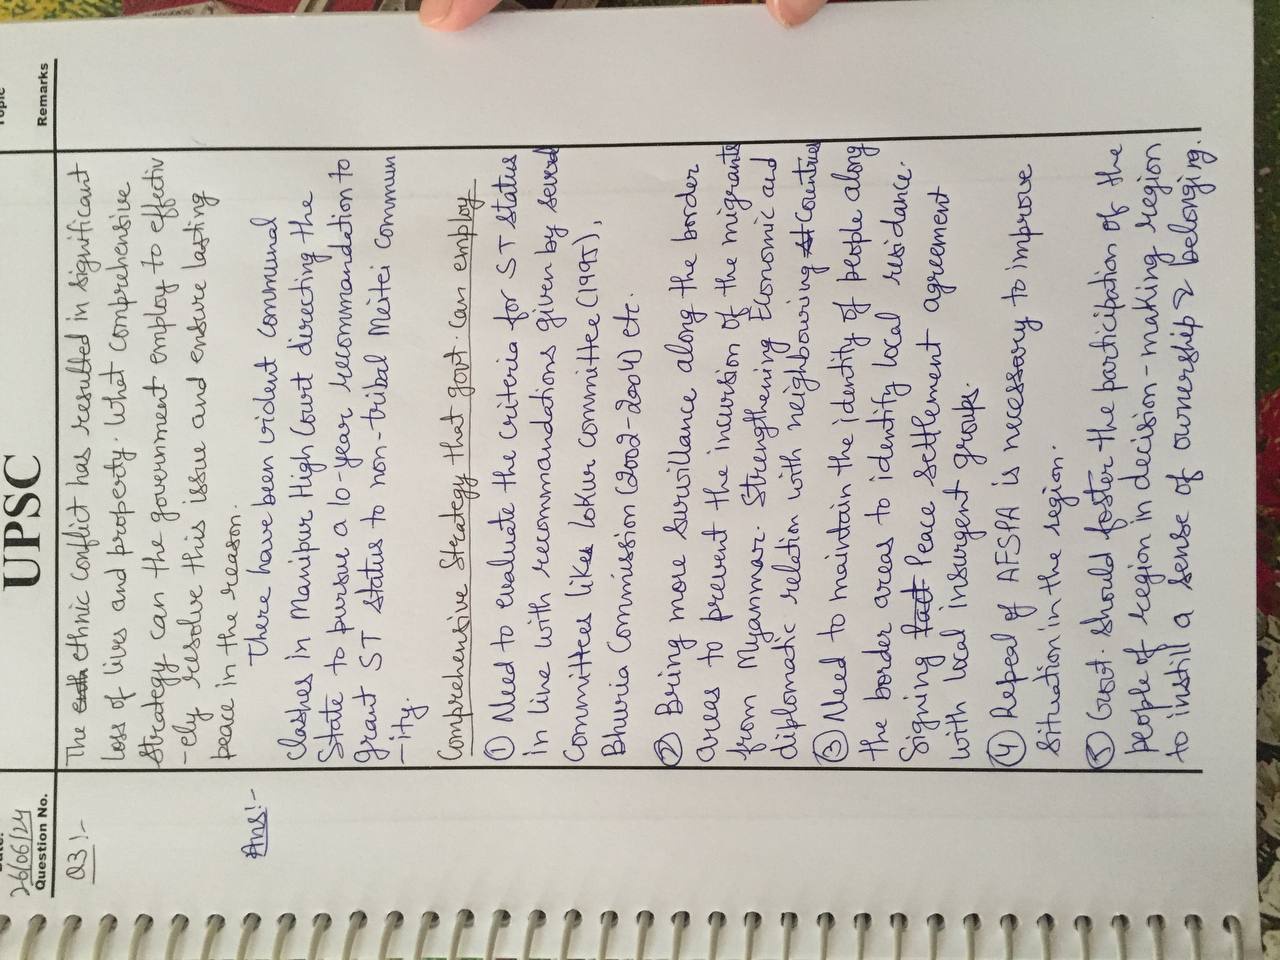 UPSC
Topic
26/06/24
Question No.
Remarks
Q3:-
The ethnic conflict has resulted in significant
loss of lives and property. What comprehensive
strategy can the government employ to effectiv
-ely resolve this issue and ensure lasting
peace in the reason.
Ans:-
There have been violent communal
clashes in Manipur High Court directing the
State to pursue a 10-year recommandation to
grant ST status to non-tribal Meitei commun
-ity.
Comprehensive Strategy that govt. can employ
① Need to evaluate the criteria for ST status
in line with recommandations given by several
Committees like Lokur committee (1995),
Bhuria Commission (2002-2004) etc.
② Bring more survillance along the border
areas to prevent the incursion of the migrants
from Myanmar. Strengthening Economic and
diplomatic relation with neighbouring Countries
③ Need to maintain the identity of people along
the border areas to identify local residance.
Signing Peace settlement agreement
with local insurgent groups.
④ Repeal of AFSPA is necessary to improve
situation in the region.
⑤ Govt. should foster the participation of the
people of region in decision-making region
to instill a sense of ownership & belonging.